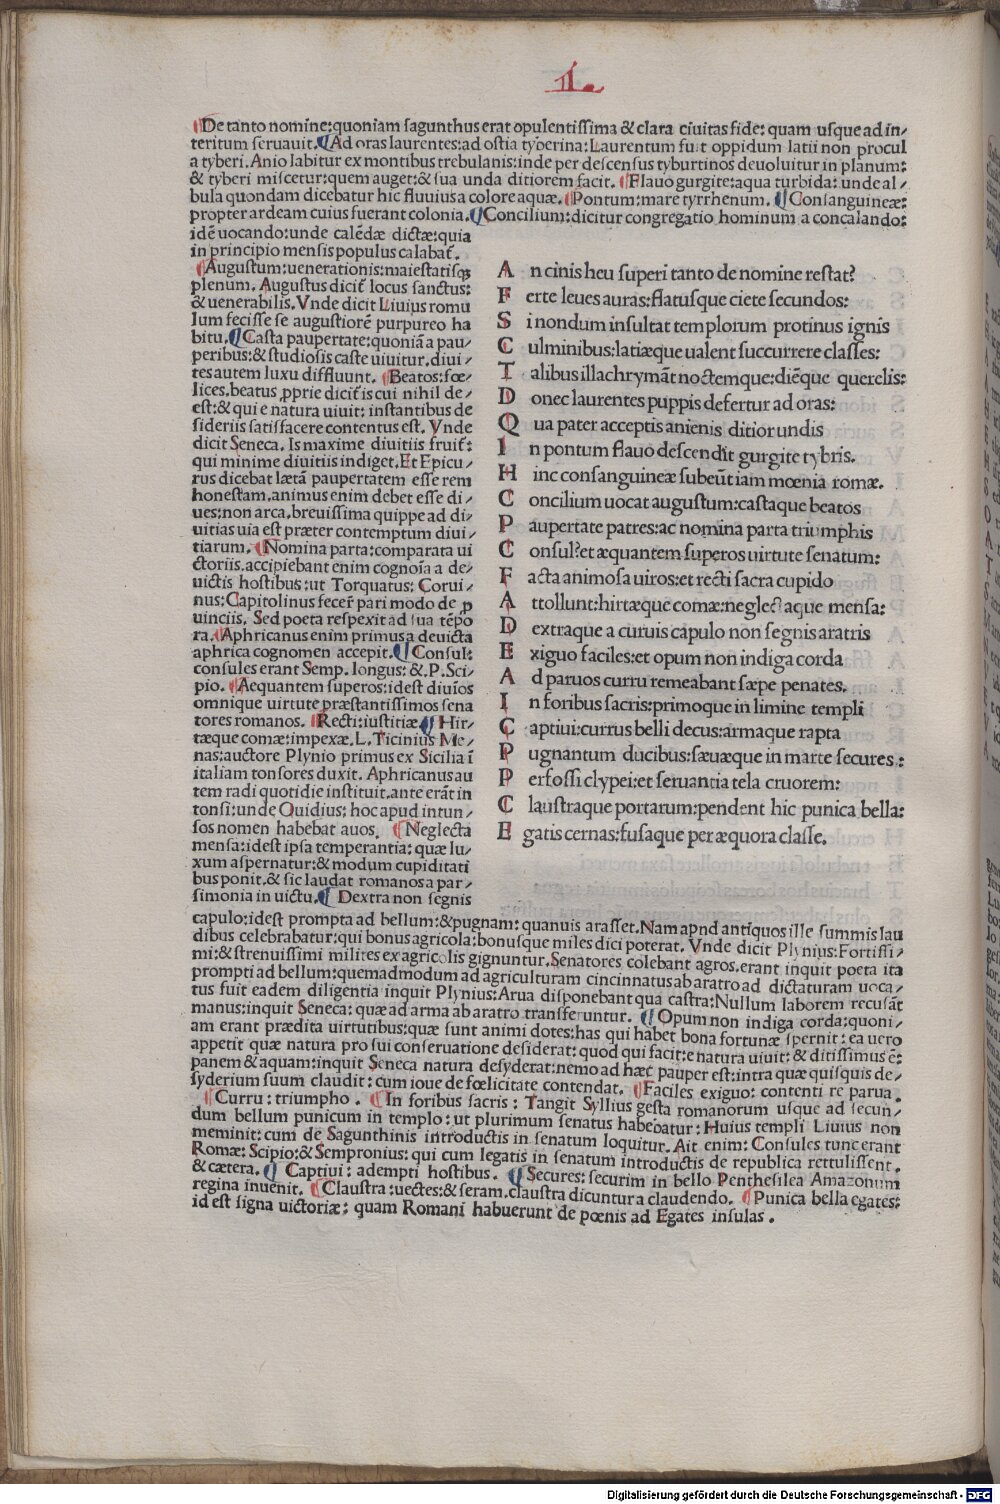 I.
De tanto nomine:quoniam ſagunthus erat opulentiſſima & clara ciuitas fide: quam uſque ad in/
teritum ſeruauit. Ad oras laurentes:ad oſtia tyberina: Laurentum fuit oppidum latii non procul
a tyberi. Anio labitur ex montibus trebulanis:inde per deſcenſus tyburtinos deuoluitur in planum:
& tyberi miſcetur:quem auget:& ſua unda ditiorem facit. Flauo gurgite:aqua turbida: unde al/
bula quondam dicebatur hic fluuius a colore aquæ. Pontum:mare tyrrhenum. Conſanguineæ:
propter ardeam cuius fuerant colonia. Concilium:dicitur congregatio hominum a concalando:
idē uocando:unde calēdæ dictæ:quia
in principio menſis populus calabat̄.
Auguſtum:uenerationis:maieſtatiſqꝫ
plenum. Auguſtus dicit̄ locus ſanctus:
& uenerabilis. Vnde dicit Liuius romu
lum feciſſe ſe auguſtiorē purpureo ha
bitu. Caſta paupertate:quoniā a pau/
peribus:& ſtudioſis caſte uiuitur.diui/
tes autem luxu diffluunt. Beatos:fœ/
lices.beatus ꝓprie dicit̄ is cui nihil de/
eſt:& qui e natura uiuit: inſtantibus de
ſideriis ſatiſfacere contentus eſt. Vnde
dicit Seneca. Is maxime diuitiis fruit̄:
qui minime diuitiis indiget. Et Epicu/
rus dicebat lætā paupertatem eſſe rem
honeſtam.animus enim debet eſſe di/
ues:non arca.breuiſſima quippe ad di/
uitias uia eſt præter contemptum diui/
tiarum. Nomina parta:comparata ui
ctoriis.accipiebant enim cognoīa a de/
uictis hoſtibus:ut Torquatus: Corui/
nus:Capitolinus fecer̄ pari modo de ꝓ
uinciis. Sed poeta reſpexit ad ſua tēpo
ra. Aphricanus enim primus a deuicta
aphrica cognomen accepit. Conſul:
conſules erant Semp. longus: &. P. Sci/
pio. Aequantem ſuperos:ideſt diuīos
omnique uirtute præſtantiſſimos ſena
tores romanos. Recti:iuſtitiæ. Hir/
tæque comæ:impexæ. L. Ticinius Me/
nas:auctore Plynio primus ex Sicilia ī
italiam tonſores duxit. Aphricanus au
tem radi quotidie inſtituit.ante erāt in
tonſi:unde Ouidius: hoc apud intun/
ſos nomen habebat auos. Neglecta
menſa:ideſt ipſa temperantia: quæ lu/
xum aſpernatur:& modum cupiditati
bus ponit.& ſic laudat romanos a par/
ſimonia in uictu. Dextra non ſegnis
A n cinis heu ſuperi tanto de nomine reſtat?
F erte leues auras:flatuſque ciete ſecundos:
S i nondum inſultat templorum protinus ignis
C ulminibus:latiæque ualent ſuccurrere claſſes:
T alibus illachrymāt noctemque:diēque querelis:
D onec laurentes puppis defertur ad oras:
Q ua pater acceptis anienis ditior undis
I n pontum flauo deſcendit gurgite tybris.
H inc conſanguineæ ſubeūt iam mœnia romæ.
C oncilium uocat auguſtum:caſtaque beatos
P aupertate patres:ac nomina parta triumphis
C onſul:et æquantem ſuperos uirtute ſenatum:
F acta animoſa uiros:et recti ſacra cupido
A ttollunt:hirtæque comæ:neglectaque menſa:
D extraque a curuis capulo non ſegnis aratris
E xiguo faciles:et opum non indiga corda
A d paruos curru remeabant ſæpe penates.
I n foribus ſacris:primoque in limine templi
C aptiui:currus belli decus:armaque rapta
P ugnantum ducibus:ſæuæque in marte ſecures:
P erfoſſi clypei:et ſeruantia tela cruorem:
C lauſtraque portarum:pendent hic punica bella:
E gatis cernas:fuſaque per æquora claſſe.
capulo:ideſt prompta ad bellum:& pugnam: quanuis araſſet. Nam apnd antiquos ille ſummis lau
dibus celebrabatur:qui bonus agricola:bonuſque miles dici poterat. Vnde dicit Plynius:Fortiſſi/
mi:& ſtrenuiſſimi milites ex agricolis gignuntur. Senatores colebant agros.erant inquit poeta ita
prompti ad bellum:quemadmodum ad agriculturam cincinnatus ab aratro ad dictaturam uoca/
tus fuit eadem diligentia inquit Plynius: Arua diſponebant qua caſtra:Nullum laborem recuſāt
manus:inquit Seneca: quæ ad arma ab aratro transferuntur. Opum non indiga corda:quoni/
am erant prædita uirtutibus:quæ ſunt animi dotes:has qui habet bona fortunæ ſpernit: ea uero
appetit quæ natura pro ſui conſeruatione deſiderat: quod qui facit:e natura uiuit: & ditiſſimus ē:
panem & aquam:inquit Seneca natura deſyderat:nemo ad hæc pauper eſt:intra quæ quiſquis de/
ſyderium ſuum claudit: cum ioue de fœlicitate contendat. Faciles exiguo: contenti re parua.
Curru: triumpho. In foribus ſacris: Tangit Syllius geſta romanorum uſque ad ſecun/
dum bellum punicum in templo: ut plurimum ſenatus habebatur: Huius templi Liuius non
meminit: cum de Sagunthinis introductis in ſenatum loquitur. Ait enim: Conſules tunc erant
Romæ: Scipio:& Sempronius: qui cum legatis in ſenatum introductis de republica rettuliſſent.
& cætera. Captiui: ademptī hoſtibus. Secures: ſecurim in bello Pentheſilea Amazonum
regina inuenit. Clauſtra:uectes:& ſeram.clauſtra dicuntur a claudendo. Punica bella egates:
id eſt ſigna uictoriæ: quam Romani habuerunt de pœnis ad Egates inſulas.
Digitalisierung gefördert durch die Deutsche Forschungsgemeinschaft - DFG